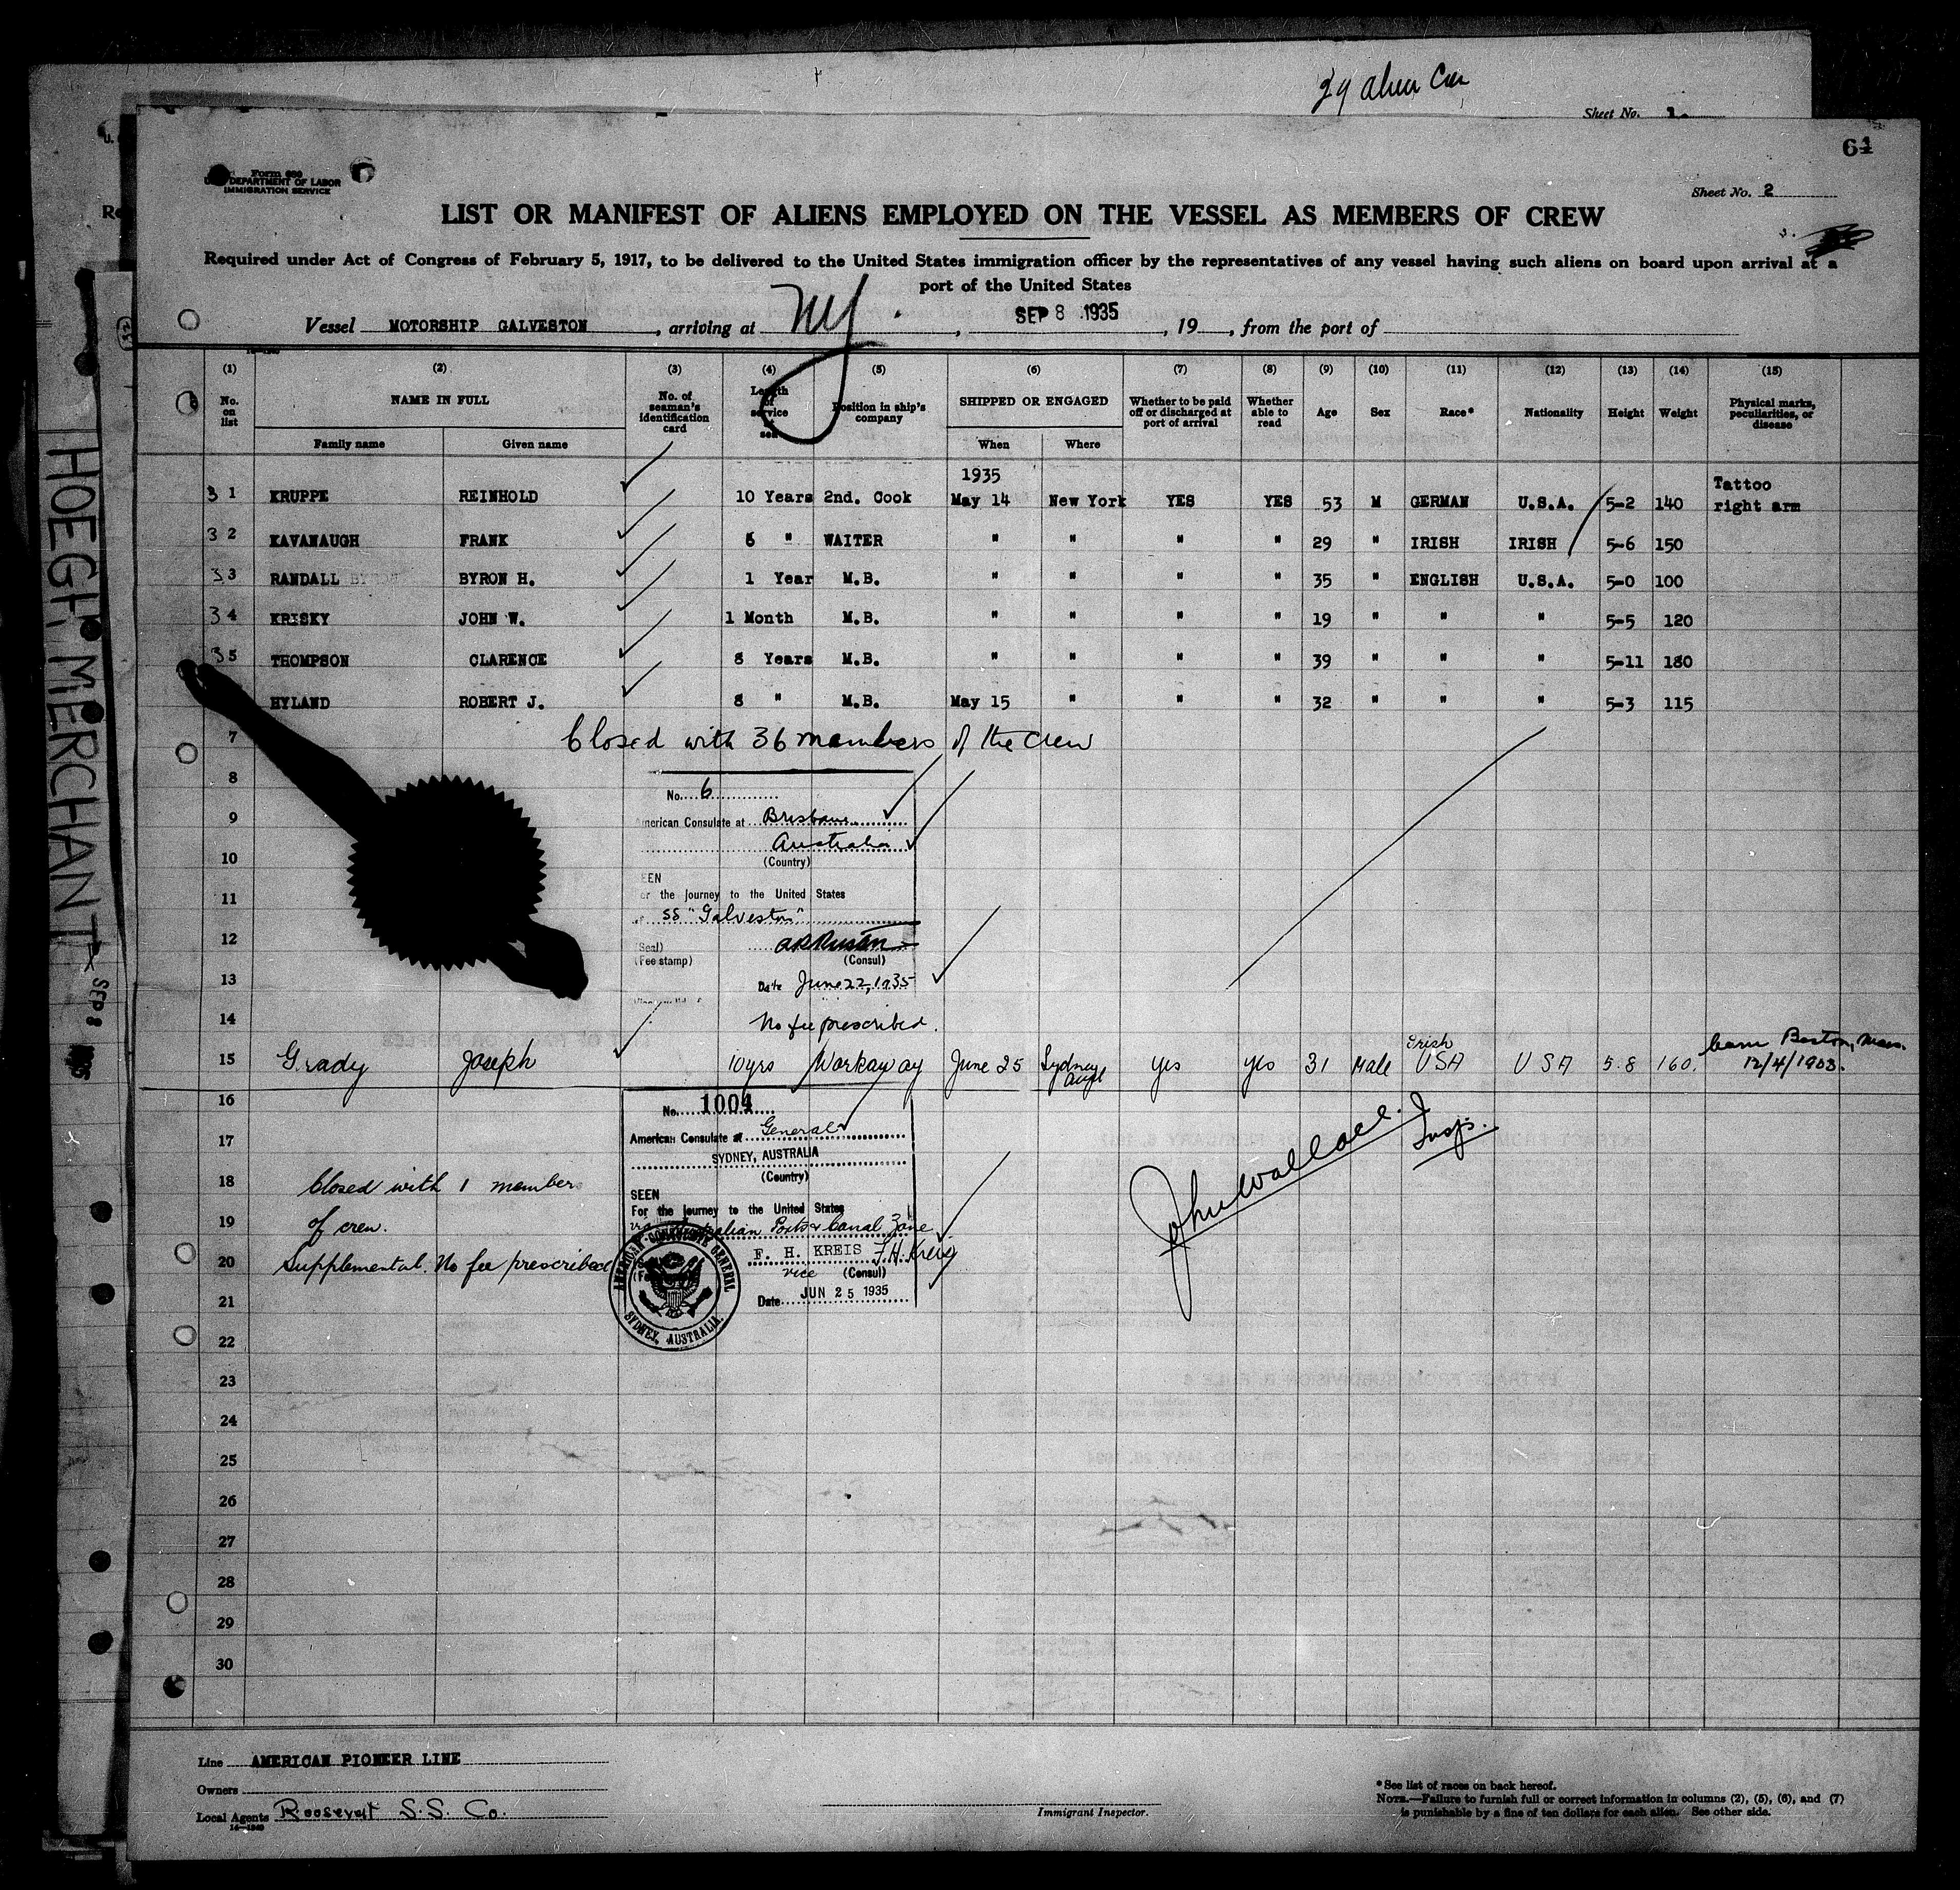 29 alien Crew
Sheet No.
64
Form 680
U.S. DEPARTMENT OF LABOR
IMMIGRATION SERVICE
Sheet No. 2
LIST OR MANIFEST OF ALIENS EMPLOYED ON THE VESSEL AS MEMBERS OF CREW
Required under Act of Congress of February 5, 1917, to be delivered to the United States immigration officer by the representatives of any vessel having such aliens on board upon arrival at a
port of the United States
Vessel MOTORSHIP GALVESTON, arriving at NY., SEP 8 1935, 19, from the port of
(1) (2) (3) (4) (5) (6) (7) (8) (9) (10) (11) (12) (13) (14) (15)
No. on list NAME IN FULL No. of seaman's identification card Length of service at sea Position in ship's company SHIPPED OR ENGAGED Whether to be paid off or discharged at port of arrival Whether able to read Age Sex Race* Nationality Height Weight Physical marks, peculiarities, or disease
Family name Given name When Where
1935
31 KRUPPE REINHOLD 10 Years 2nd. Cook May 14 New York YES YES 53 M GERMAN U.S.A. 5-2 140 Tattoo right arm
32 KAVANAUGH FRANK " WAITER " " " " 29 " IRISH IRISH 5-6 150
33 RANDALL BYRON H. 1 Year M.B. " " " " 35 " ENGLISH U.S.A. 5-0 100
34 KRISKY JOHN W. 1 Month M.B. " " " " 19 " " " 5-5 120
35 THOMPSON CLARENCE 8 Years M.B. " " " " 39 " " " 5-11 180
HYLAND ROBERT J. 8 " M.B. May 15 " " " 32 " " " 5-3 115
7 Closed with 36 members of the crew
8
No. 6
9
American Consulate at Brisbane
Australia
10
(Country)
SEEN
11
For the journey to the United States
SS "Galveston"
12
(Seal)
(Fee stamp)
(Consul)
13
Date June 22, 1935
14
No fee prescribed.
15 Grady Joseph 10 yrs Workaway June 25 Sydney yes yes 31 Male Irish USA USA 5.8 160. born Boston, Mass. 12/4/1903.
16
No. 1004
17
American Consulate at General
SYDNEY, AUSTRALIA
(Country)
18 Closed with 1 members
SEEN
For the journey to the United States
19 of crew.
via Australian Ports & Canal Zone
20 Supplemental. No fee prescribed
F. H. KREIS F.H. Kreis
vice (Consul)
21
Date JUN 25 1935
AMERICAN CONSULATE GENERAL
SYDNEY, AUSTRALIA.
John Wallace. J
Insp.
22
23
24
25
26
27
28
29
30
Line AMERICAN PIONEER LINE
Owners
Local Agents Roosevelt S.S. Co.
Immigrant Inspector.
*See list of races on back hereof.
NOTE.—Failure to furnish full or correct information in columns (2), (5), (6), and (7)
is punishable by a fine of ten dollars for each alien. See other side.
HOEGH MERCHANT
SEP 8 1935